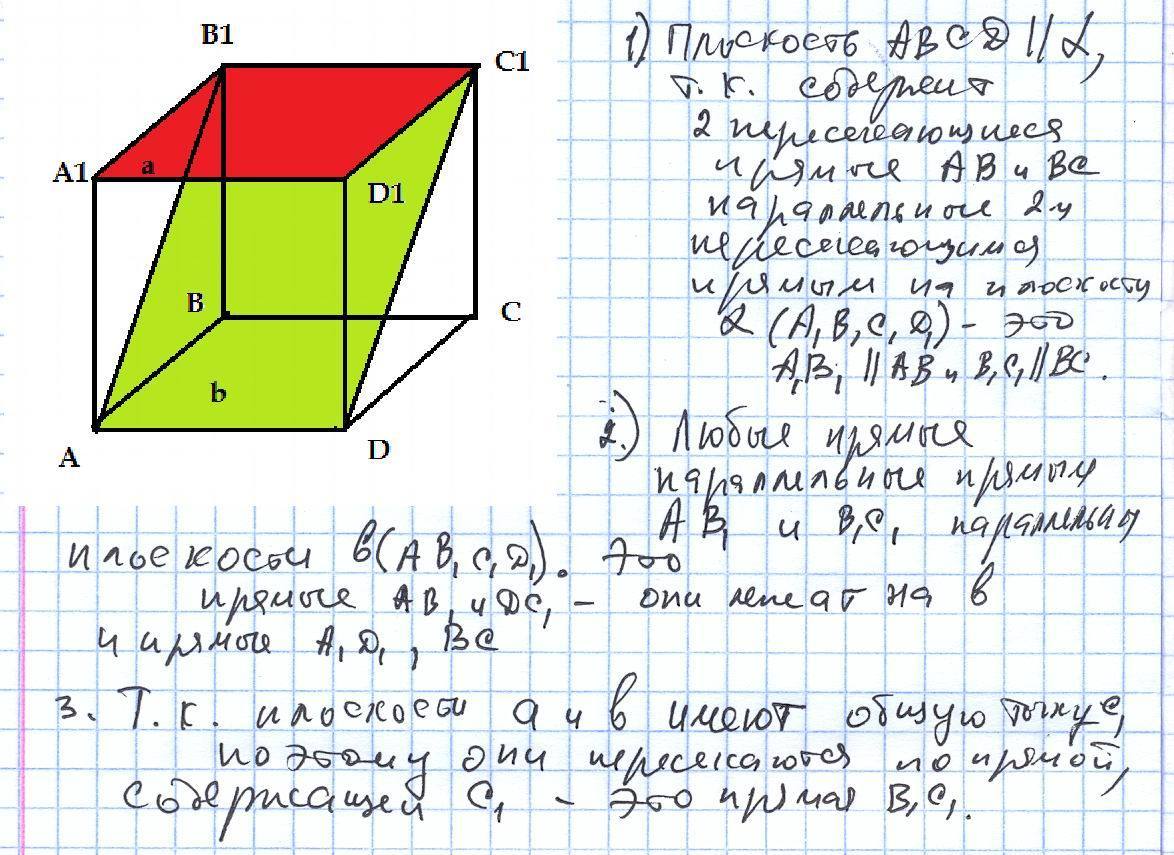 B1
C1
A1
a
D1
B
C
b
A
D
1) Плоскость ABCD || α,
т.к. содержит
2 пересекающиеся
прямые AB и BC
параллельные 2-м
пересекающимся
прямым на плоскости
α (A₁B₁C₁D₁) - это
A₁B₁ || AB и B₁C₁ || BC.
2.) Любые прямые
параллельные прямым
AB₁ и B₁C₁ параллельны
плоскости в(AB₁C₁D₁). Это
прямые AB₁ и DC₁ - они лежат на в
и прямые A₁D₁, BC
3. Т.к. плоскости a и в имеют общую точку C₁
поэтому они пересекаются по прямой,
содержащей C₁ - это прямая B₁C₁.